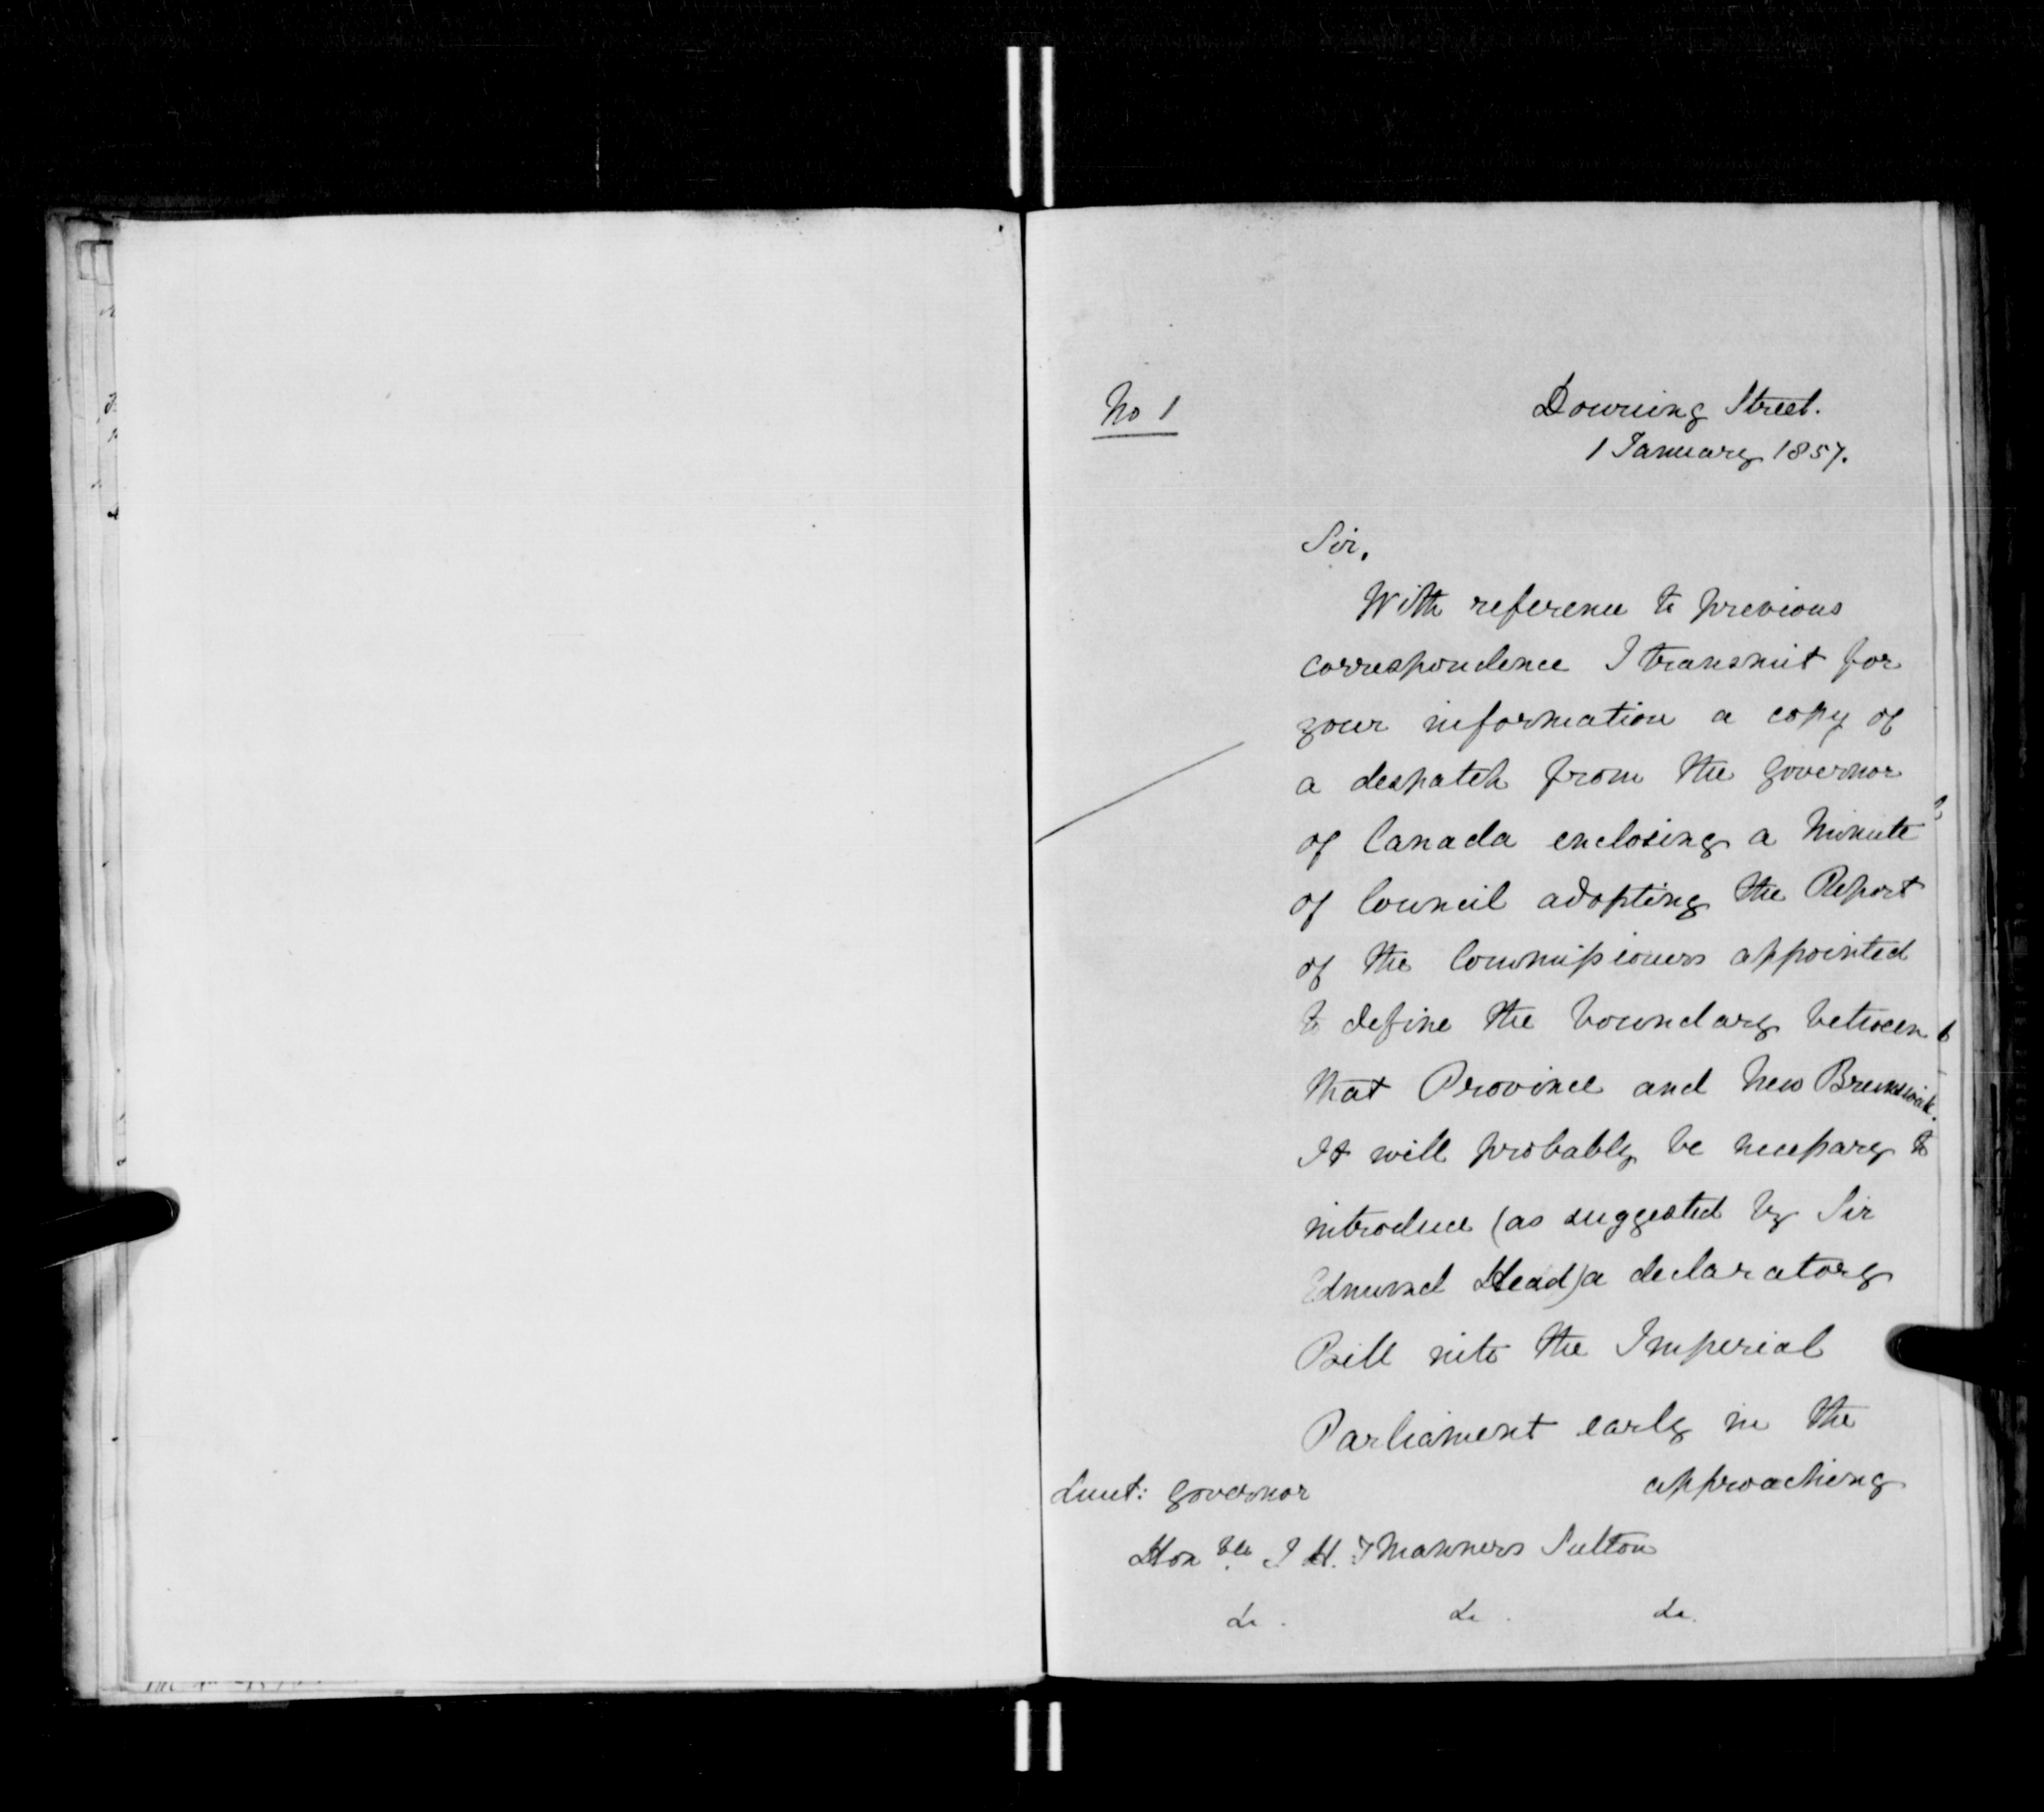 No 1
Downing Street.
1 January 1857.
Sir,
With reference to previous
correspondence I transmit for
your information a copy of
a despatch from the Governor
of Canada enclosing a Minute
of Council adopting the Report
of the Commissioners appointed
to define the boundary between
that Province and New Brunswick.
It will probably be necessary to
introduce (as suggested by Sir
Edmund Head) a declaratory
Bill into the Imperial
Parliament early in the
approaching
Lieut: Governor
Honble J H. T Manners Sutton
&c. &c. &c.